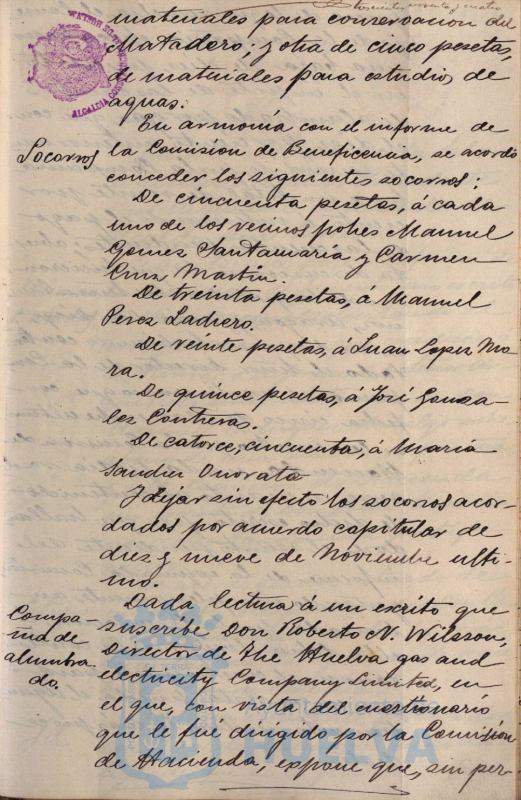 materiales para conservacion del
Matadero; y otra de cinco pesetas,
de materiales para estudios de
aguas.
En armonía con el informe de
Socorros
la Comision de Beneficencia, se acordó
conceder los siguientes socorros:
De cincuenta pesetas, á cada
uno de los vecinos pobres Manuel
Gomez Santamaría y Carmen
Cruz Martin.
De treinta pesetas, á Manuel
Perez Ladrero.
De veinte pesetas, á Juan Lopez Mo-
ra.
De quince pesetas, á José Gonza-
lez Contreras.
De catorce, cincuenta, á María
Sanchez Onorata
Y dejar sin efecto los socorros acor-
dados por acuerdo capitular de
diez y nueve de Noviembre ulti-
mo.
Compa-
ñia de
alumbra-
do.
Dada lectura á un escrito que
suscribe Don Roberto N. Wilsson,
Director de The Huelva gas and
electricity Company Limited, en
el que, con vista del cuestionario
que le fue dirigido por la Comision
de Hacienda, expone que, sin per-
HUELVA